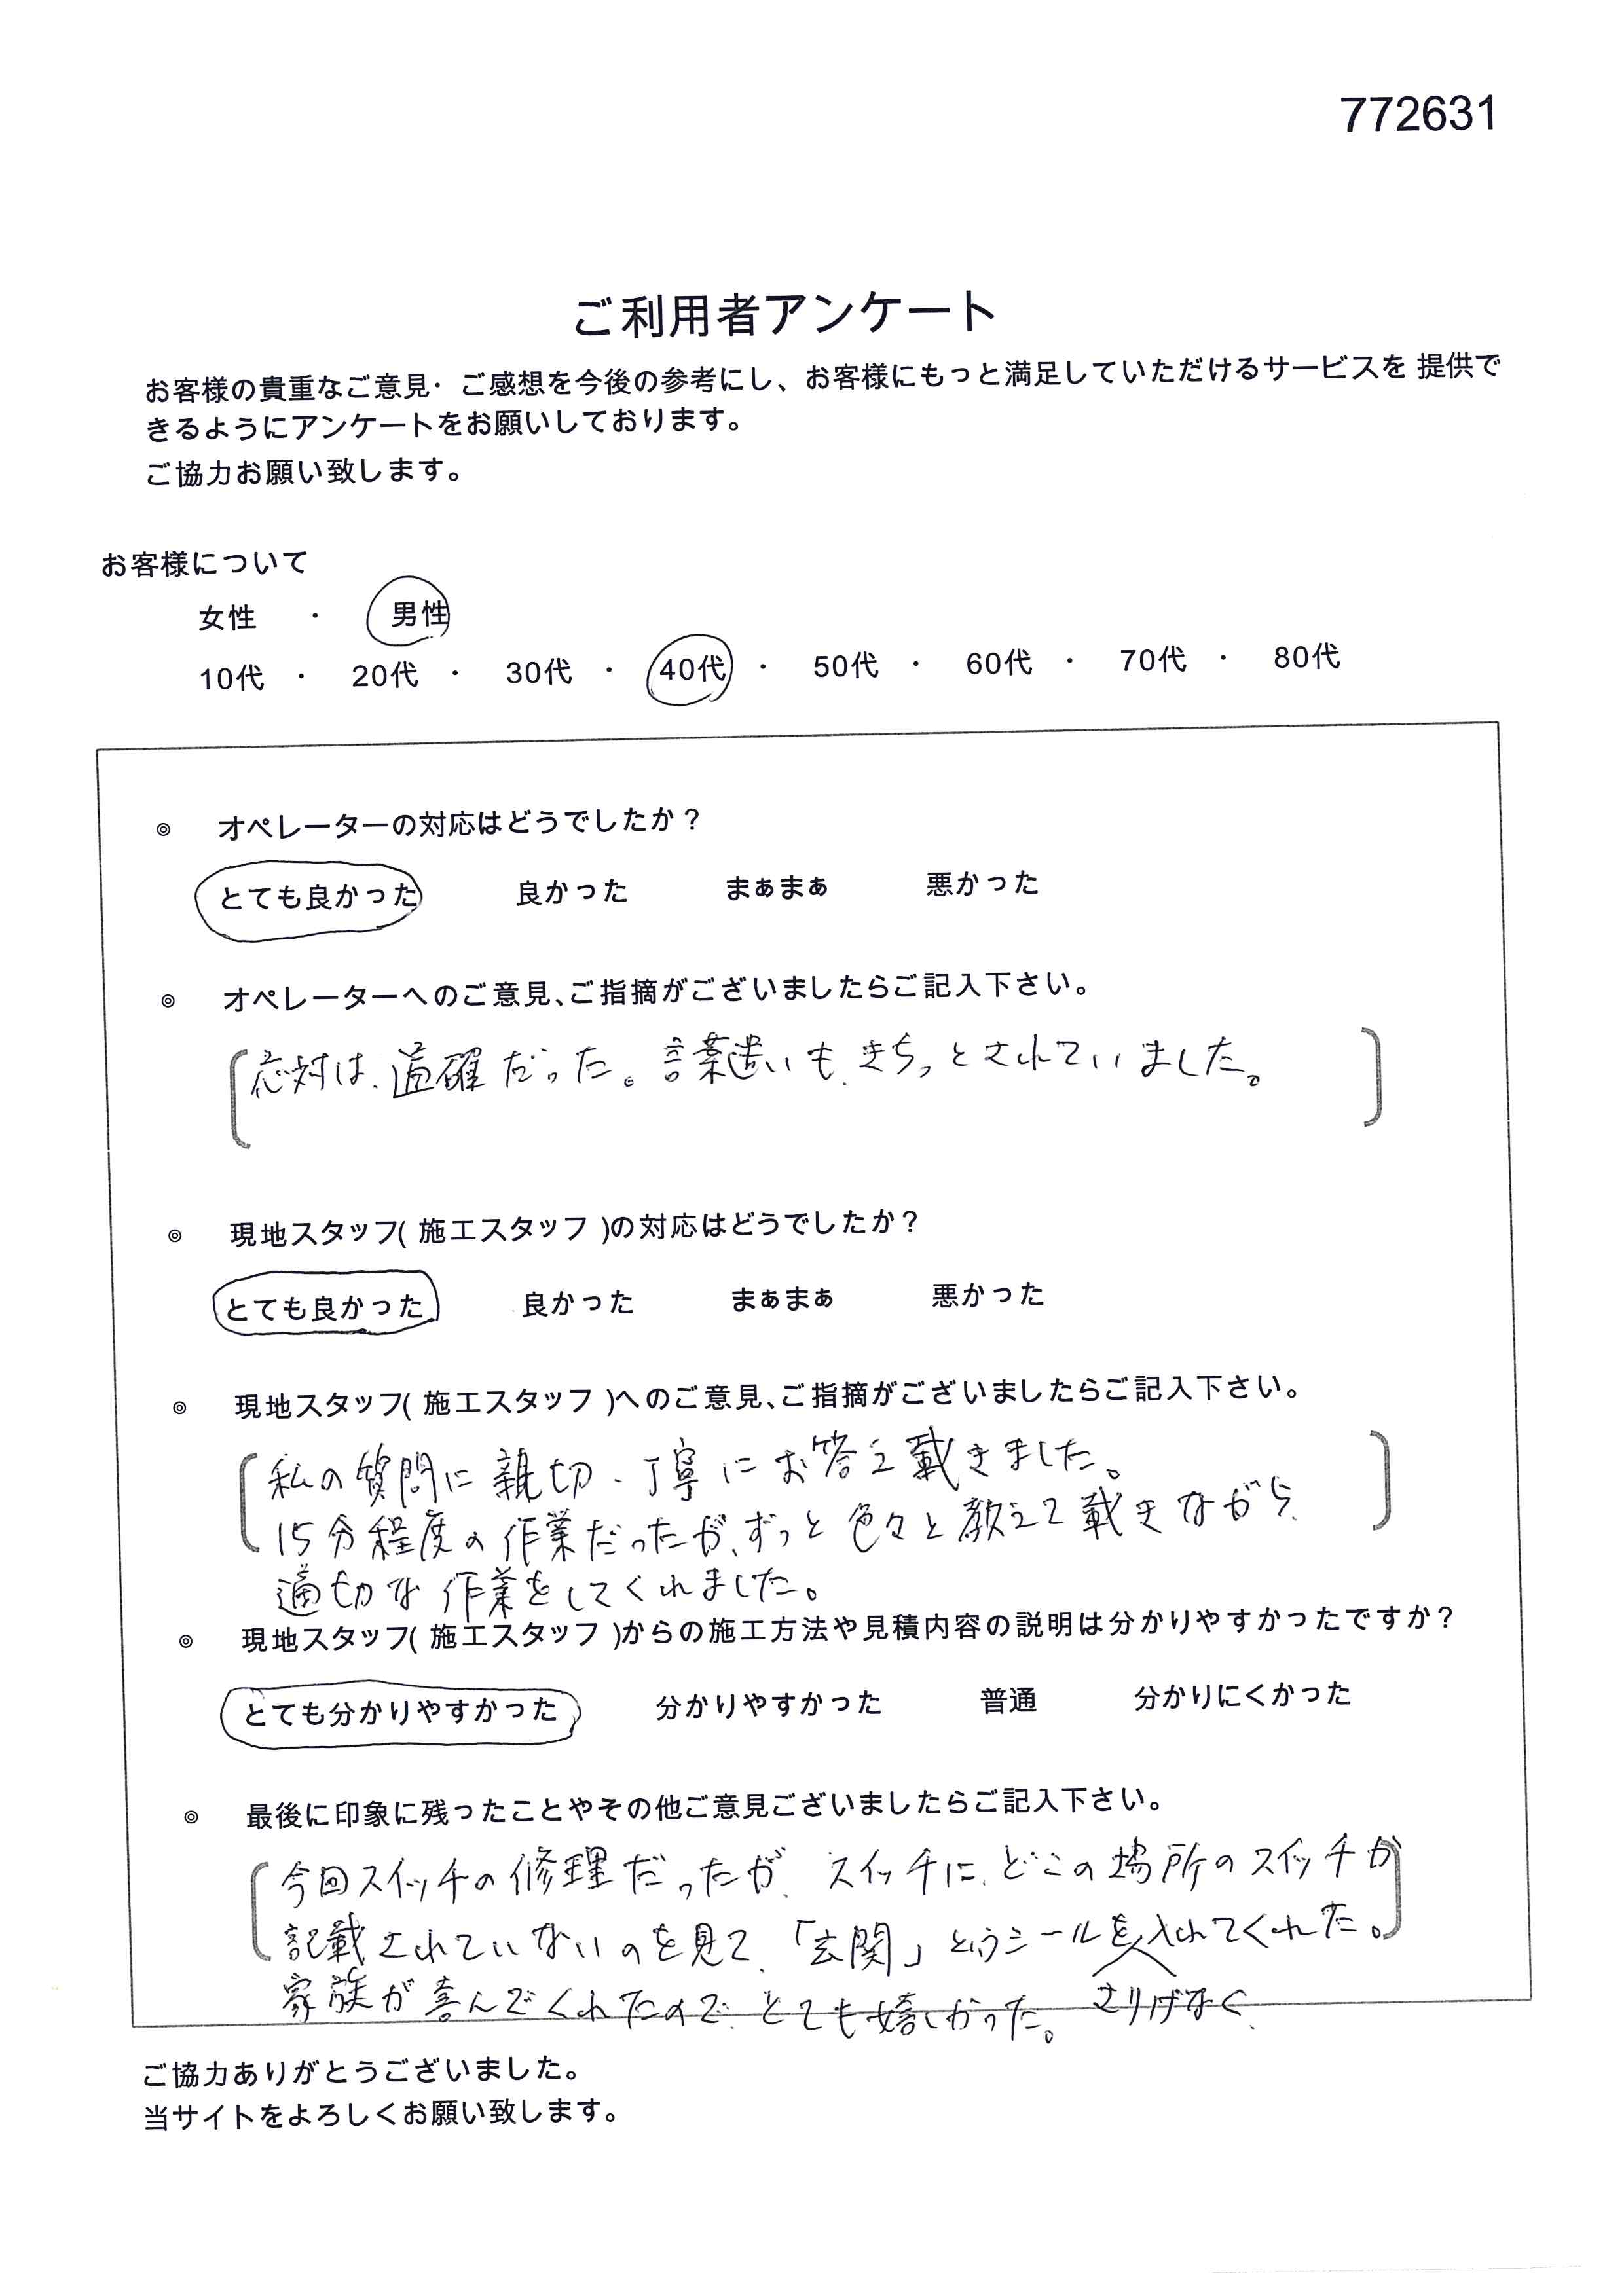 772631
ご利用者アンケート
お客様の貴重なご意見・ご感想を今後の参考にし、お客様にもっと満足していただけるサービスを 提供で
きるようにアンケートをお願いしております。
ご協力お願い致します。
お客様について
女性 ・ 男性
10代 ・ 20代 ・ 30代 ・ 40代 ・ 50代 ・ 60代 ・ 70代 ・ 80代
◎ オペレーターの対応はどうでしたか？
とても良かった 良かった まぁまぁ 悪かった
◎ オペレーターへのご意見、ご指摘がございましたらご記入下さい。
応対は、適確だった。言葉遣いも、きちっとされていました。
◎ 現地スタッフ( 施工スタッフ )の対応はどうでしたか？
とても良かった 良かった まぁまぁ 悪かった
◎ 現地スタッフ( 施工スタッフ )へのご意見、ご指摘がございましたらご記入下さい。
私の質問に親切、丁寧にお答え戴きました。
15分程度の作業だったが、ずっと色々と教えて戴きながら、
適切な作業をしてくれました。
◎ 現地スタッフ( 施工スタッフ )からの施工方法や見積内容の説明は分かりやすかったですか？
とても分かりやすかった 分かりやすかった 普通 分かりにくかった
◎ 最後に印象に残ったことやその他ご意見ございましたらご記入下さい。
今回スイッチの修理だったが、スイッチに、どこの場所のスイッチか
記載されていないのを見て、「玄関」というシールを入れてくれた。
さりげなく、
家族が喜んでくれたので、とても嬉しかった。
ご協力ありがとうございました。
当サイトをよろしくお願い致します。